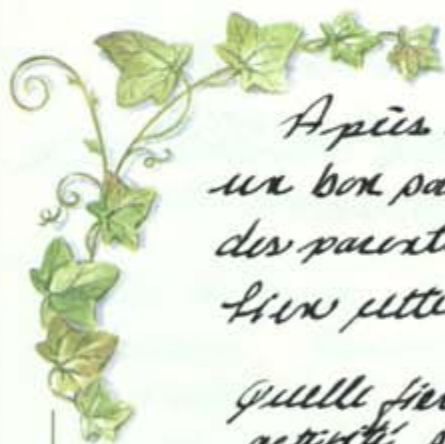 Après
un bon pa
des parent
bien cette
Quelle fier
activité